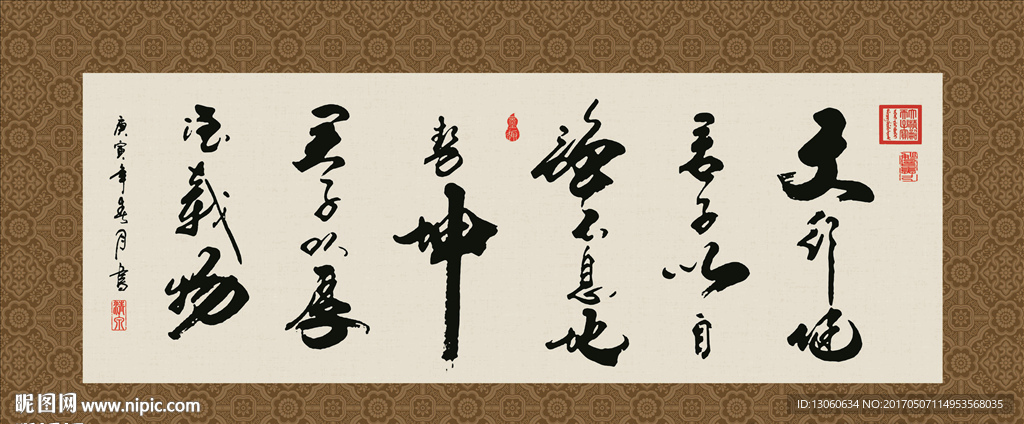 天行健
君子以自
强不息地
势坤
君子以厚
德载物
庚寅年春月書
昵图网 www.nipic.com
ID:13060634 NO:20170507114953568035